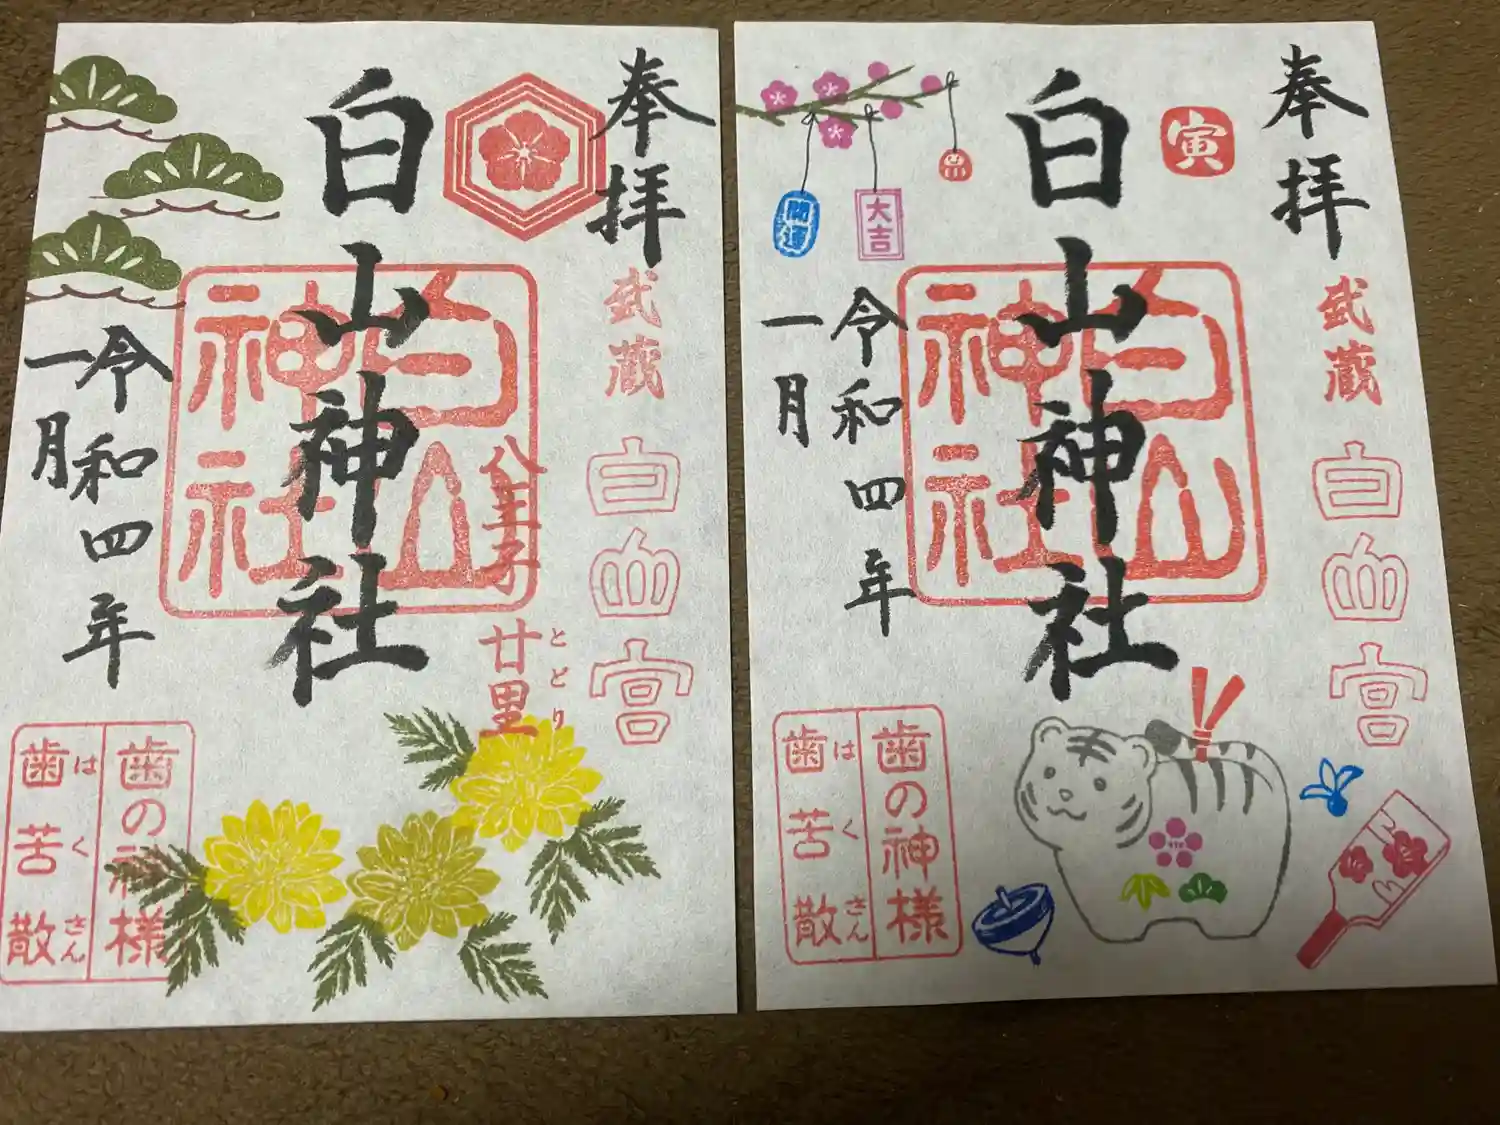 奉拝
武蔵
白山宮
八王子
廿里
とどり
白山神社
白山神社
令和四年
一月
歯の神様
歯苦散
はくさん
奉拝
武蔵
白山宮
寅
白山神社
白山神社
令和四年
一月
開運
大吉
歯の神様
歯苦散
はくさん